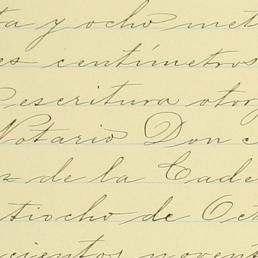 ta y ocho met
es centímetros
escritura otor
Notario Don
de la Cade
tiocho de Oct
cientos novent